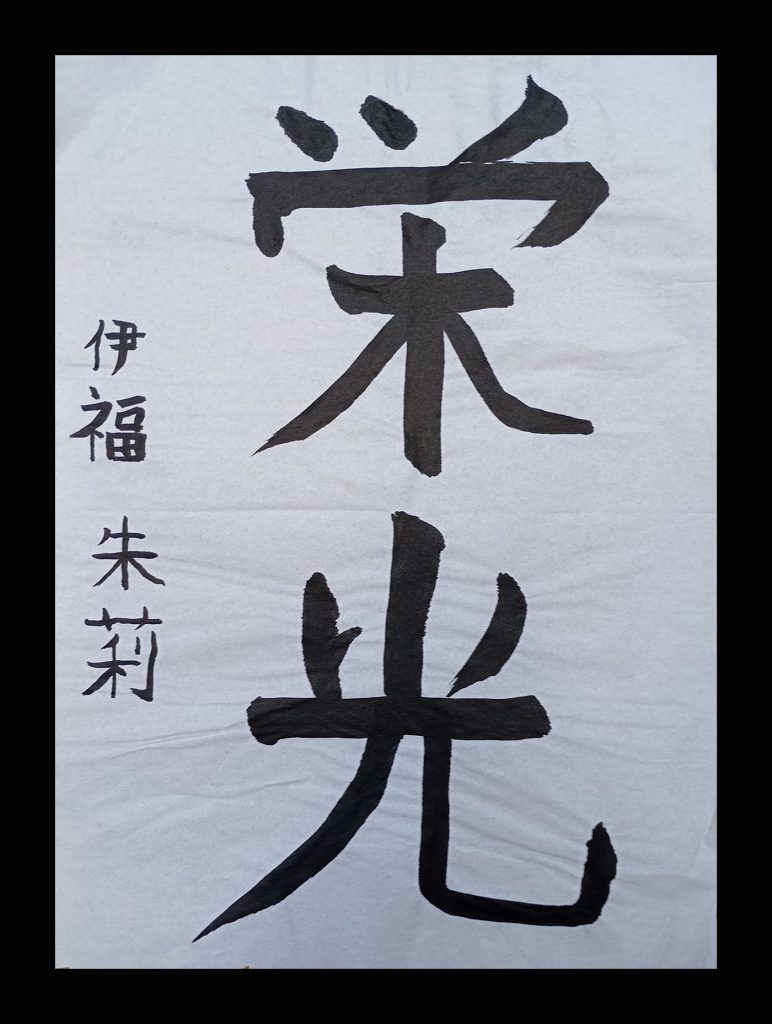 栄光
伊福 朱莉